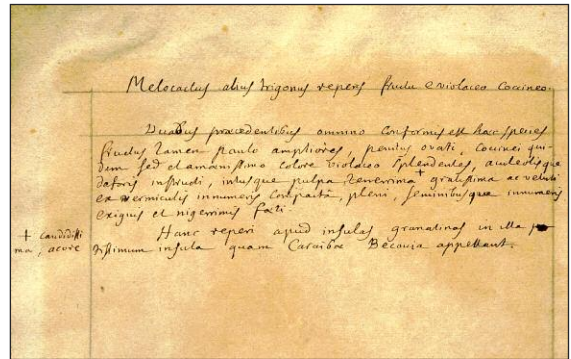 Melocactus alius trigonus repens fructu e violaceo Coccineo.
Duabus præcedentibus omnino conformis est hæc species
fructus tamen paulo ampliores, penitus ovati, coccinei qui-
dem sed et amænissimo colore violaceo splendentes, aculeolisque
instructi, intusque pulpa tenerrima + gratissima ac veluti
ex vermiculis innumeris compacta, pleni, seminibusque innumeris
exiguis et nigerrimis fœti.
+ candidissi
ma, acore
Hanc reperi apud insulas granatinas in illa
insula quam Caraibæ Becouia appellant.